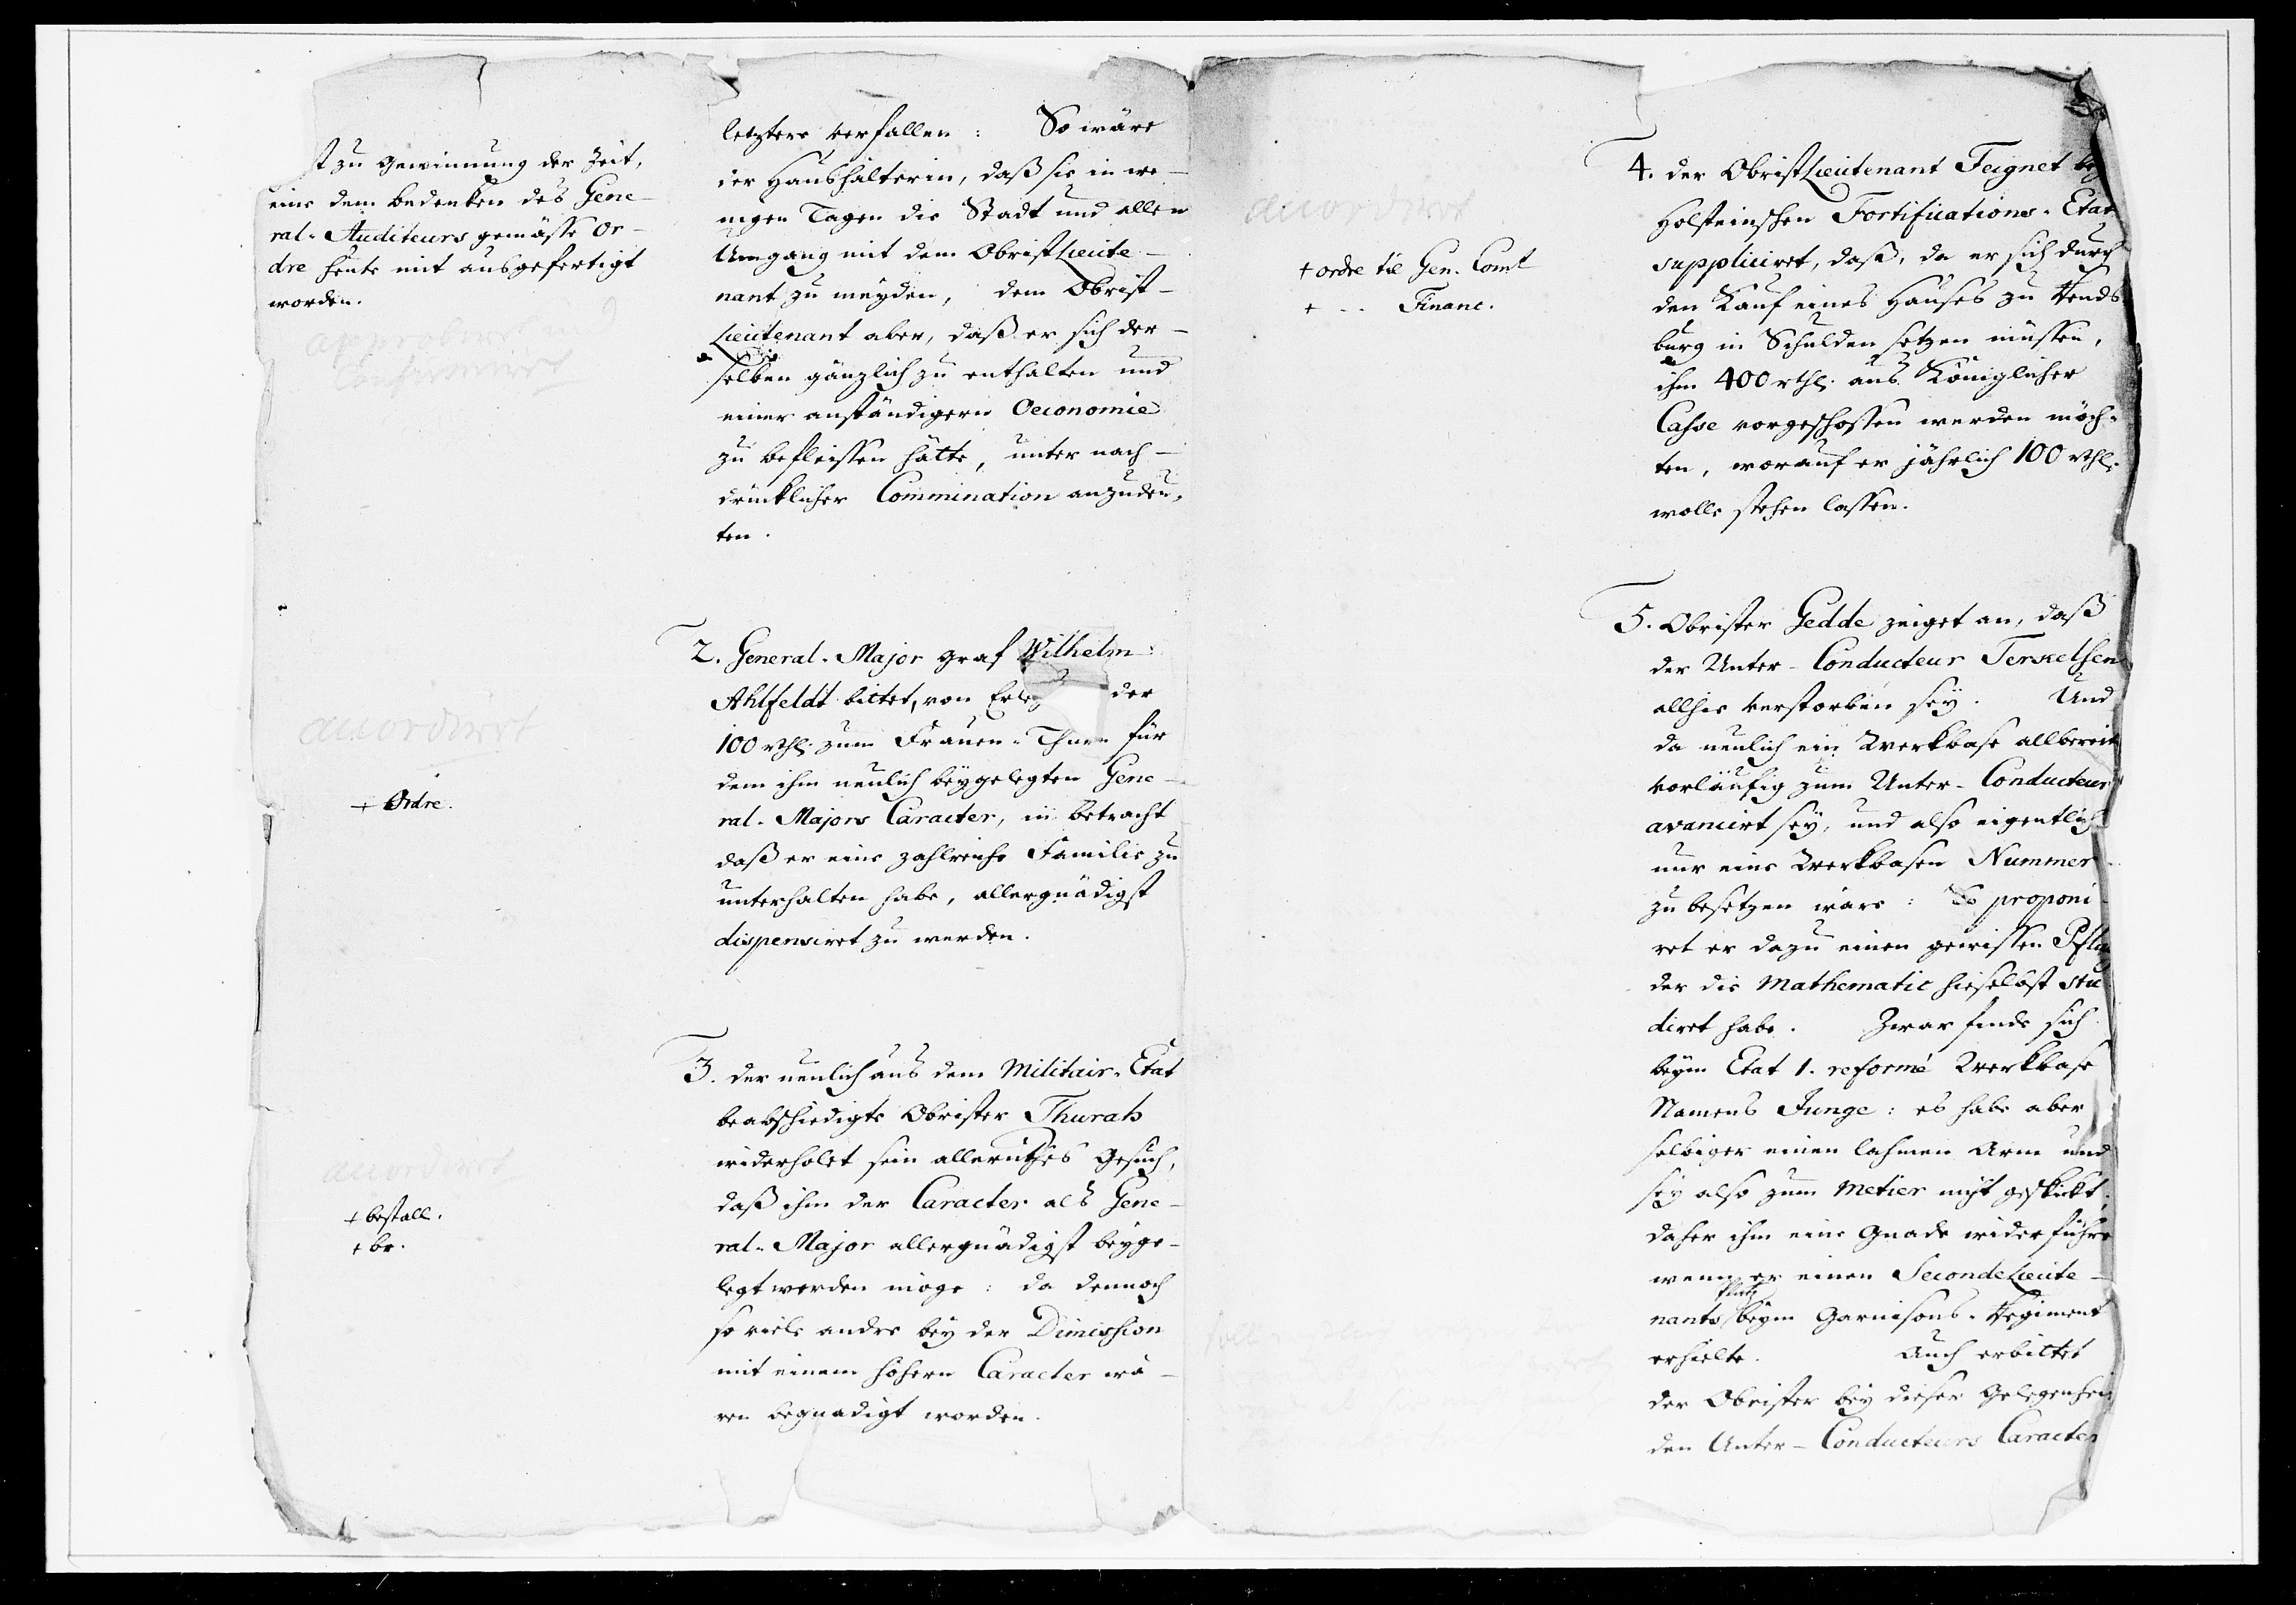 st zu Gewinnung der Zeit,
eine dem Bedenken des Gene-
ral-Auditeurs gemässe Or-
dre heute mit ausgefertigt
worden.
approbiret und
confirmiret
letztere verfallen: So wäre
der Haushälterin, daß sie in we-
nigen Tagen die Stadt und allen
Umgang mit dem ObristLieute-
nant zu meyden, dem Obrist-
Lieutenant aber, daß er sich der-
selben gänzlich zu enthalten und
einer anständigern Oeconomie
zu befleissen hätte, unter nach-
drücklicher Commination anzudeu-
ten.
accordiret
+ Ordre.
2. General-Major Graf Wilhelm
Ahlfeldt bittet, von Erleg der
100 rthl. zum Frauen-Thurn für
dem ihm neulich beygelegten Gene-
ral-Majors Caracter, in Betracht
daß er eine zahlreiche Familie zu
unterhalten habe, allergnädigst
dispensiret zu werden.
accordiret
+ bestall.
+ br.
3. Der neulich aus dem Militair-Etat
beabschiedigte Obrister Thurah
widerholet sein alleruthes Gesuch,
daß ihm der Caracter als Gene-
ral-Major allergnädigst beyge-
legt werden möge: da dennoch
so viele andre bey der Dimission
mit einem höhern Caracter wä-
ren begnadigt worden.
accordiret
+ ordre til Gen. Comt
+ -- Financ.
4. Der ObristLieutenant Feignet bey
Holsteinschen Fortifications-Etat
suppliciret, daß, da er sich durch
den Kauf eines Hauses zu Rends-
burg in Schulden setzen müssen,
ihm 400 rthl. aus Königlicher
Casse vorgeschossen werden möch-
ten, worauf er jährlich 100 rthl.
wolle stehen lassen.
5. Obrister Gedde zeiget an, daß
der Unter-Conducteur Terkelsen
allhie verstorben sey. Und
da neulich ein Werkbase allbereit
vorläufig zum Unter-Conducteur
avancirt sey, und also eigentlich
nur eine Werkbasen Nummer
zu besetzen wäre: So proponi-
ret er dazu einen gewissen
der die Mathematic hieselbst stu
diret habe. Zwar finde sich
beym Etat 1. reformé Werkbase
Namens Junge: es habe aber
selbiger einen lahmen Arm und
sey also zum Metier nicht geschickt;
daher ihm eine Gnade widerführe
wenn er einen SecondeLieute-
nants Platz beym Garnisons-Regiment
erhielte. Auch erbittet
der Obrister bey dieser Gelegenheit
den Unter-Conducteurs Caracter